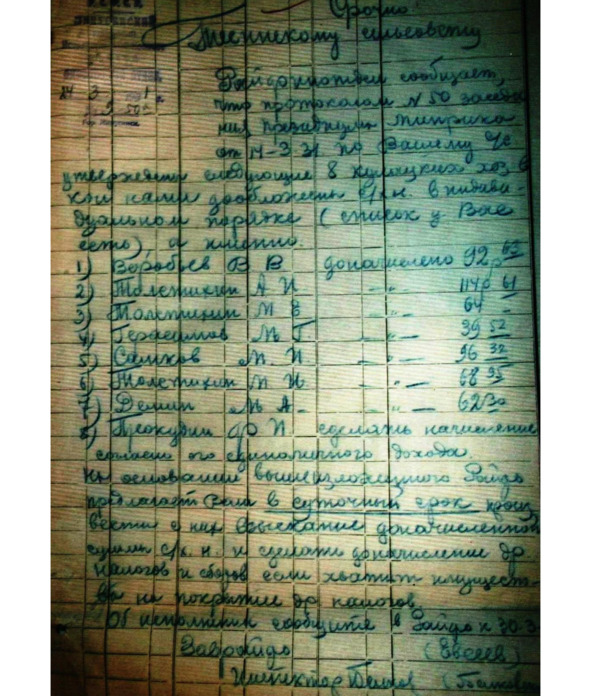 Срочно
Тесинскому сельсовету
Райфинотдел сообщает,
что протоколом N 50 заседа
ния президиума
от 14-3 31 по Вашему
утверждены следующие 8 кулацких хоз в
кои нами дообложены с/х.н. в индиви-
дуальном порядке (список у Вас
есть), а именно.
1) Воробьев В В. доначислено 92р 63
2) Толстихин А И -"- 114р 61
3) Толстихин М Е -"- 64 -
4) Герасимов М Г. -"- 39 52
5) Сашков М. И -"- 96 32
6) Толстихин М И. -"- 68 95
7) Демин М А. -"- 62 30
8) Прокудин Ф И сделать начисление
согласно его единоличного дохода.
На основании вышеизложенного Райфо
предлагает Вам в суточный срок произ
вести с них взыскание доначисленной
суммы с/х. н. и сделать доначисление др
налогов и сборов если хватит имущест-
ва на покрытие др налогов.
Об исполнении сообщите в Райфо к 30-3
Заврайфо (Евсеев)
Инспектор